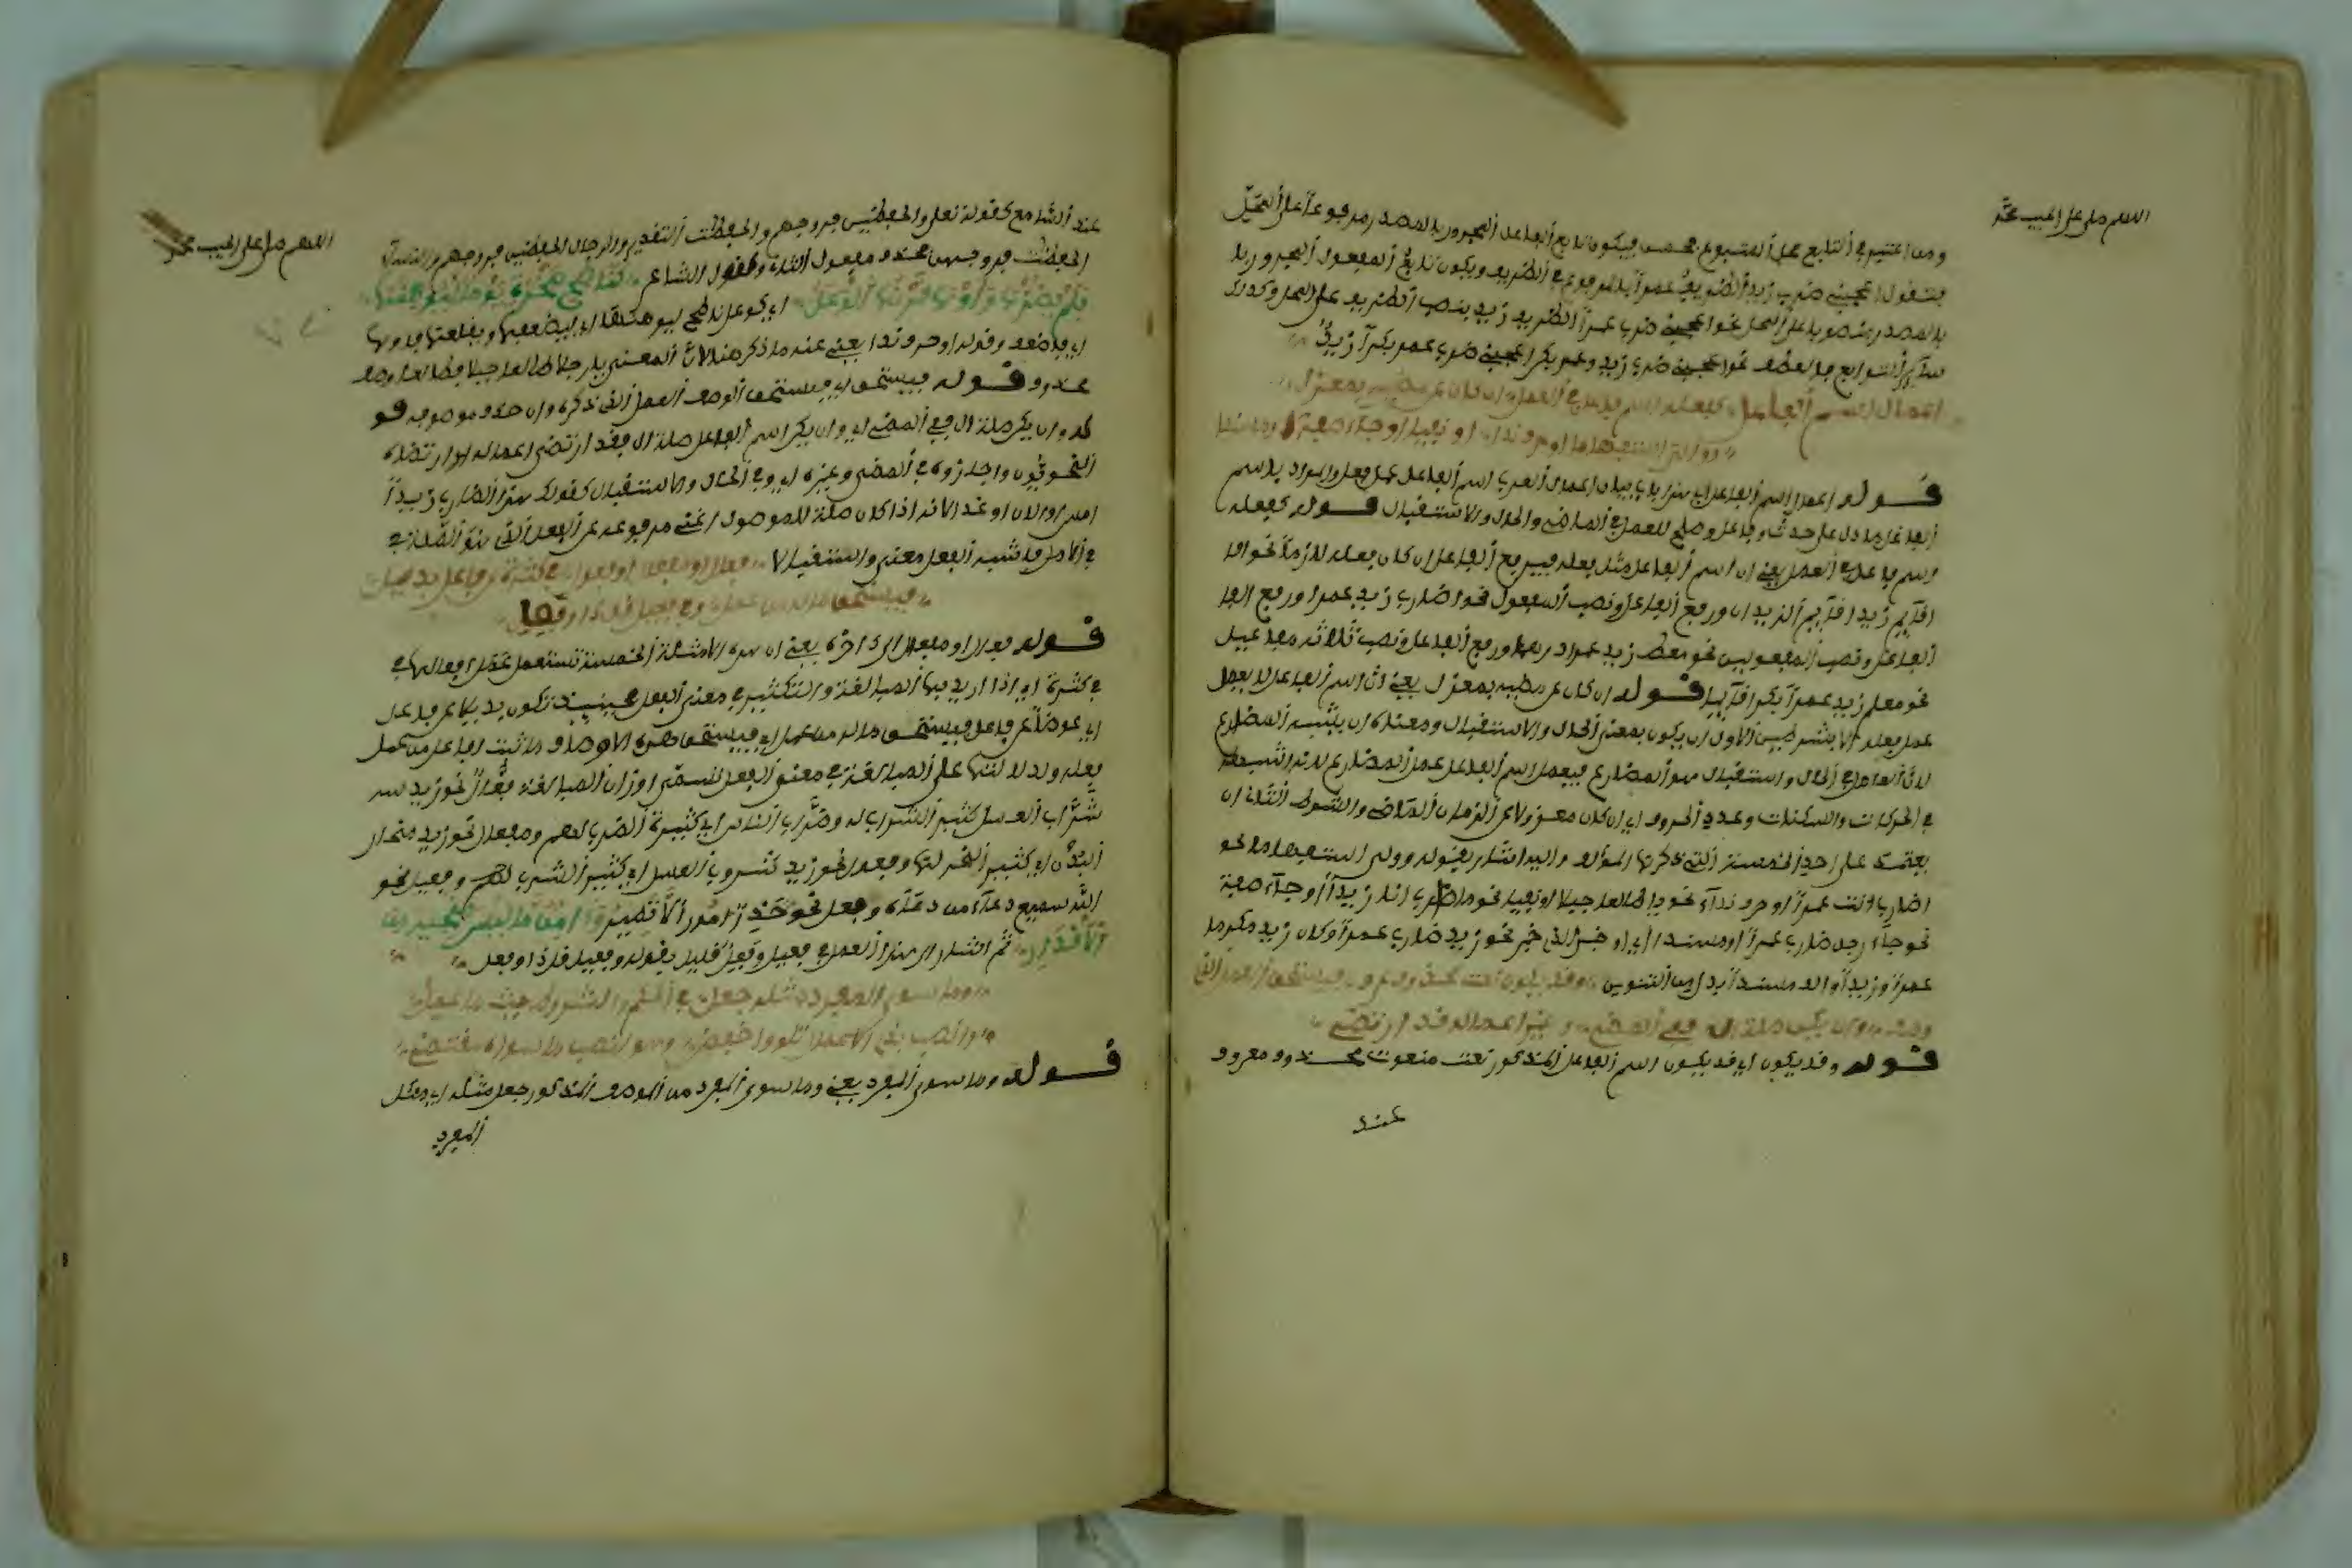 اللهم صل على الحبيب محمد
ومن اعتبر في التابع محل المتبوع فحسن فيكون تابع الفاعل المجرور بالمصدر مرفوعا على المحل
فتقول اعجبني ضرب زيد الظريف عمرا بالمرفوع في الظريف ويكون تابع المفعول المجرور بال
بالمصدر منصوبا على المحل نحو اعجبني ضرب عمرا الظريف زيد بنصب الظريف على المحل وكذلك
سائر التوابع فالعطف نحو اعجبني ضرب زيد وعمر بكرا اعجبني ضرب عمر بكرا زيد
اعمال اسم الفاعل كفعله اسم فاعل في العمل ان كان عن مضيه بمعزل
وولي استفهاما او حرف ندا او نفيا او جا صفة او مسندا
قوله اعمال اسم الفاعل اي هذا باب بيان اعمال العرب اسم الفاعل عمل فعله والمراد باسم
الفاعل ما دل على حدث وفاعل وصلح للعمل في الماضي والحال والاستقبال قوله كفعله
اسم فاعل في العمل يعني ان اسم الفاعل مثل فعله فيرفع الفاعل ان كان فعله لازما نحو اقا
اقائم زيد اقائم الزيدان ورفع الفاعل ونصب المفعول نحو اضارب زيد عمرا ورفع الفا
الفاعل ونصب المفعولين نحو معط زيد عمرا درهما ورفع الفاعل ونصب ثلاثة مفاعيل
نحو معلم زيد عمرا بكرا قائما قوله ان كان عن مضيه بمعزل يعني ان اسم الفاعل لا يعمل
عمل فعله الا بشرطين الاول ان يكون بمعنى الحال والاستقبال ومعناه ان يشبه المضارع
لان العامل في الحال والاستقبال هو المضارع فيعمل اسم الفاعل عمل المضارع لانه اشبهه
في الحركات والسكنات وعدد الحروف اي ان كان معزولا عن الزمان الماضي والشرط الثاني ان
يعتمد على احد الخمسة التي ذكرها المؤلف واليه اشار بقوله وولي استفهاما نحو
اضارب انت عمرا او حرف نداء نحو يا طالعا جبلا او نفيا نحو ما ضارب انا زيدا او جاء صفة
نحو جاء رجل ضارب عمرا او مسندا اي او خبرا الى خبر نحو زيد ضارب عمرا وكان زيد مكرما
عمرا وزيدا والف مسندا بدل من التنوين وقد يكون نعت محذوف عرف فيستحق العمل الذي
وصف وان يكن صلة ال ففي المضي وغيره اعماله قد ارتضي
قوله وقد يكون اي قد يكون اسم الفاعل المذكور نعت منعوت محذوف معروف
عند
اللهم صل على الحبيب محمد
عند السامع كقوله تعالى والحافظين فروجهم والحافظات التقدير والرجال الحافظين فروجهم والنساء
الحافظات فروجهن فحذف مفعول الثاني وكقول الشاعر كناطح صخرة يوما ليوهنها
فلم يضرها واوهى قرنه الوعل اي كوعل ناطح ليوهنها اي ليضعفها ويقلعها فاوهى
اي فاضعف وقوله او حرف ندا يعني عند ما ذكر هنا لان المعنى يا رجلا طالعا جبلا فطالعا وصف
محذوف قوله فيستحق اي فيستحق الوصف العمل الذي ذكره وان حذف موصوفه قو
كه وان يكن صلة ال ففي المضي اي وان يكن اسم الفاعل صلة ال فقد ارتضي اعماله اي ارتضاه
النحويون واجازوه في المضي وغيره اي وفي الحال والاستقبال كقولك هذا الضارب زيدا
امس او الان او غدا لانه اذا كان صلة للموصول اغنى مرفوعه عن الفعل الذي هو الصلة في
في الاصل فاشبه الفعل معنى واستقبالا فعال او مفعال او فعول في كثرة عن فاعل بديل
فيستحق ما له من عمل وفي فعيل قل ذا وفعل
قوله فعال او مفعال الى اخره يعني ان هذه الامثلة الخمسة تستعمل عمل افعالها في
في كثرة اي اذا اريد بها المبالغة والتكثير في معنى الفعل فحينئذ تكون بديلا عن فاعل
اي عوضا عن فاعل فيستحق ما له من عمل اي فيستحق هذه الاوصاف ما ثبت لفاعل من عمل
فعله ولدلالتها على المبالغة في معنى الفعل تسمى اوزان المبالغة فعال نحو زيد
شراب العسل كثير الشراب له وضراب الناس اي كثيرة الضرب لهم ومفعال نحو زيد منحار
البدن اي كثير النحر لها وفعول نحو زيد شروب العسل اي كثير الشرب لهم وفعيل نحو
الله سميع دعاء من دعاه وفعل نحو حذر امورا لا تضير وآمن ما ليس منجيه من
الاقدار ثم اشار الى هذا العمل في فعيل وفعل قليل بقوله وفعيل قل ذا وفعل
وما سوى المفرد مثله جعل في الحكم والشروط حيث ما عمل
وانصب بذي الاعمال تلوا واخفض وهو لنصب ما سواه مقتضي
قوله وما سوى المفرد يعني وما سوى المفرد من الوصف المذكور جعل مثله اي مثل
المفرد